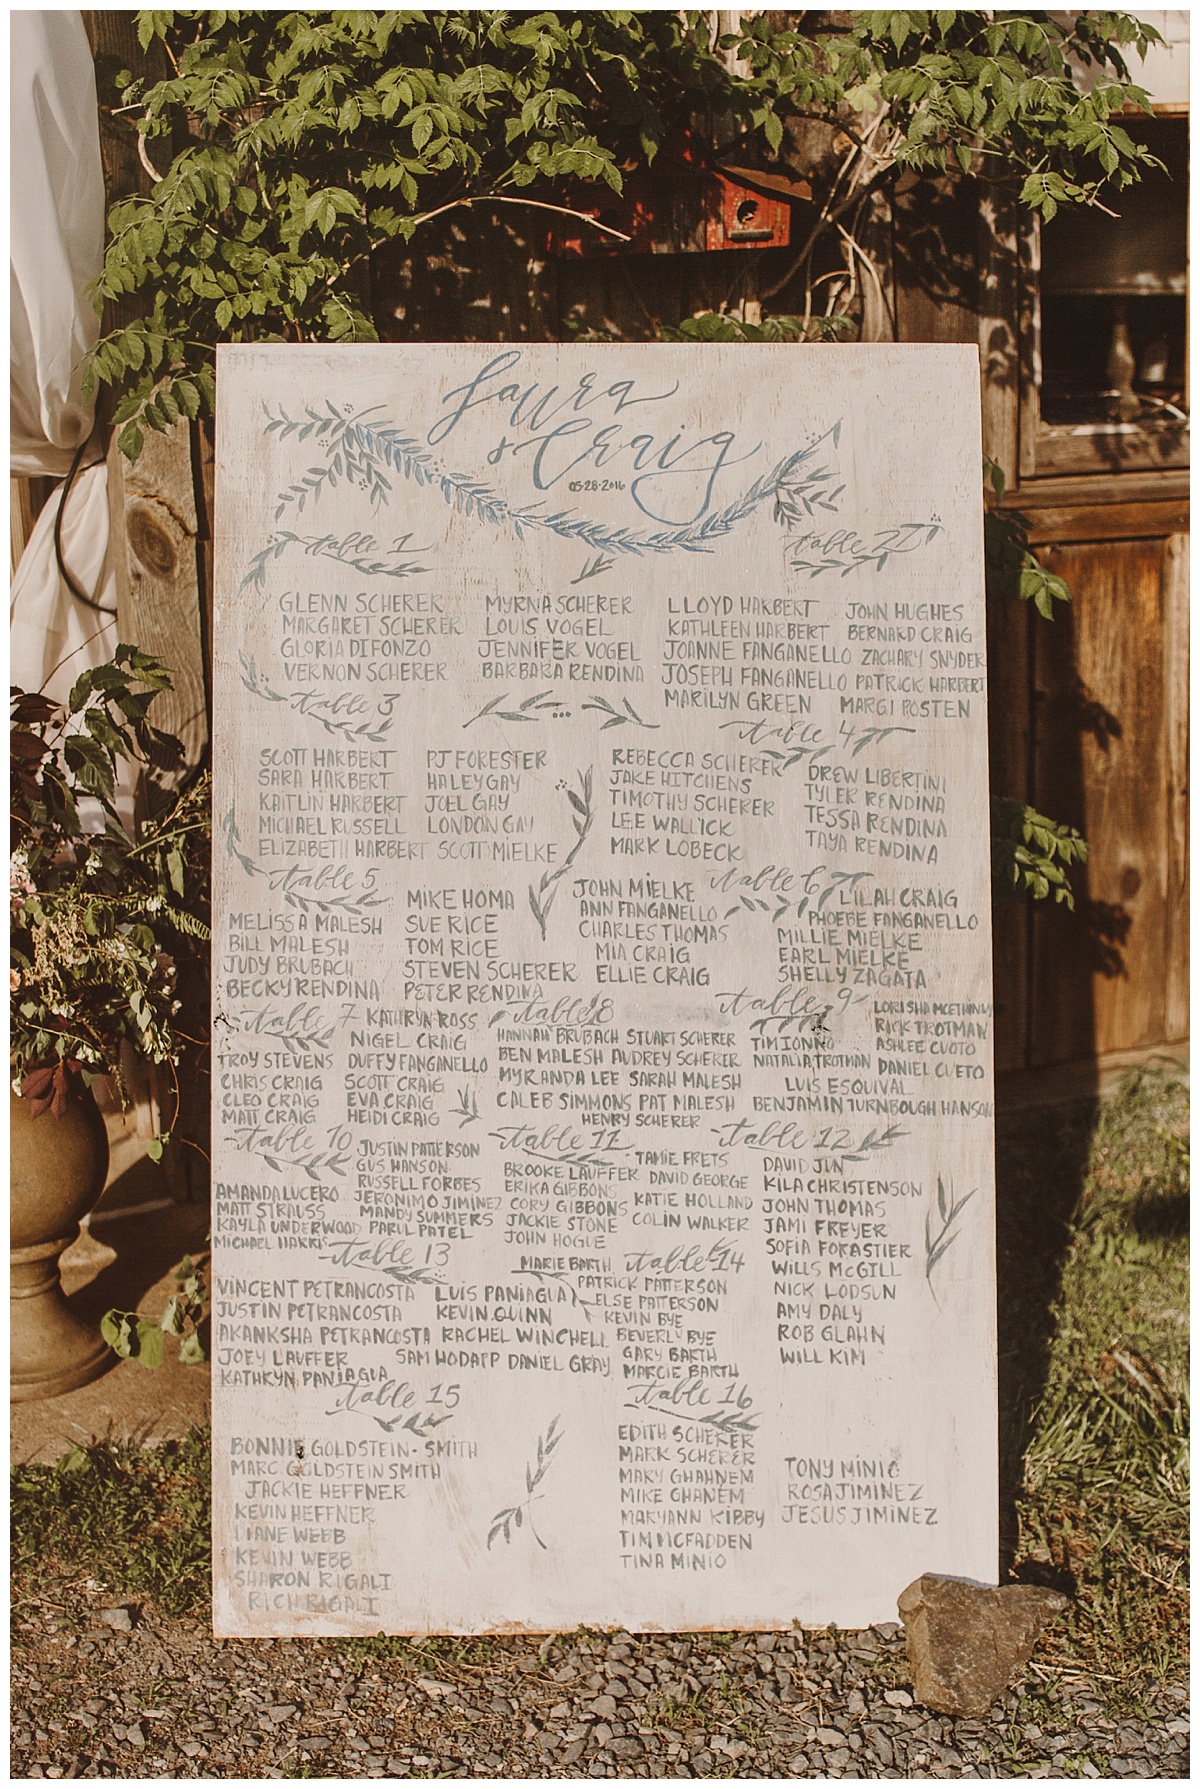 Laura
& Craig
05-28-2016
table 1
GLENN SCHERER
MARGARET SCHERER
GLORIA DIFONZO
VERNON SCHERER
MYRNA SCHERER
LOUIS VOGEL
JENNIFER VOGEL
BARBARA RENDINA
table 2
LLOYD HARBERT
KATHLEEN HARBERT
JOANNE FANGANELLO
JOSEPH FANGANELLO
MARILYN GREEN
JOHN HUGHES
BERNARD CRAIG
ZACHARY SNYDER
PATRICK HARBERT
MARGI POSTEN
table 3
SCOTT HARBERT
SARA HARBERT
KAITLIN HARBERT
MICHAEL RUSSELL
ELIZABETH HARBERT
PJ FORESTER
HALEY GAY
JOEL GAY
LONDON GAY
SCOTT MIELKE
table 4
REBECCA SCHERER
JAKE HITCHENS
TIMOTHY SCHERER
LEE WALLICK
MARK LOBECK
DREW LIBERTINI
TYLER RENDINA
TESSA RENDINA
TAYA RENDINA
table 5
MELISSA MALESH
BILL MALESH
JUDY BRUBACH
BECKY RENDINA
MIKE HOMA
SUE RICE
TOM RICE
STEVEN SCHERER
PETER RENDINA
table 6
JOHN MIELKE
ANN FANGANELLO
CHARLES THOMAS
MIA CRAIG
ELLIE CRAIG
LILAH CRAIG
PHOEBE FANGANELLO
MILLIE MIELKE
EARL MIELKE
SHELLY ZAGATA
table 7
TROY STEVENS
CHRIS CRAIG
CLEO CRAIG
MATT CRAIG
KATHRYN ROSS
NIGEL CRAIG
DUFFY FANGANELLO
SCOTT CRAIG
EVA CRAIG
HEIDI CRAIG
table 8
HANNAH BRUBACH STUART SCHERER
BEN MALESH AUDREY SCHERER
MYRANDA LEE SARAH MALESH
CALEB SIMMONS PAT MALESH
HENRY SCHERER
table 9
TIM IONNO
NATALIA TROTMAN
LUIS ESQUIVAL
BENJAMIN TURNBOUGH HANSON
RICK TROTMAN
ASHLEE CUOTO
DANIEL CUETO
table 10
AMANDA LUCERO
MATT STRAUSS
KAYLA UNDERWOOD
MICHAEL HARRIS
JUSTIN PATTERSON
GUS HANSON
RUSSELL FORBES
JERONIMO JIMINEZ
MANDY SUMMERS
PARUL PATEL
table 11
BROOKE LAUFFER
ERIKA GIBBONS
CORY GIBBONS
JACKIE STONE
JOHN HOGUE
TAMIE FRETS
DAVID GEORGE
KATIE HOLLAND
COLIN WALKER
table 12
DAVID JUN
KILA CHRISTENSON
JOHN THOMAS
JAMI FREYER
SOFIA FORASTIER
WILLS McGILL
NICK LODSUN
AMY DALY
ROB GLAHN
WILL KIM
table 13
VINCENT PETRANCOSTA
JUSTIN PETRANCOSTA
AKANKSHA PETRANCOSTA
JOEY LAUFFER
KATHRYN PANIAGUA
LUIS PANIAGUA
KEVIN QUINN
RACHEL WINCHELL
SAM HODAPP DANIEL GRAY
table 14
MARIE BARTH
PATRICK PATTERSON
ELSE PATTERSON
KEVIN BYE
BEVERLY BYE
GARY BARTH
MARCIE BARTH
table 15
BONNIE GOLDSTEIN-SMITH
MARC GOLDSTEIN SMITH
JACKIE HEFFNER
KEVIN HEFFNER
DIANE WEBB
KEVIN WEBB
SHARON RIGALI
RICH RIGALI
table 16
EDITH SCHERER
MARK SCHERER
MARY GHAHNEM
MIKE GHANEM
MARYANN KIBBY
TIM MCFADDEN
TINA MINIO
TONY MINIO
ROSA JIMINEZ
JESUS JIMINEZ